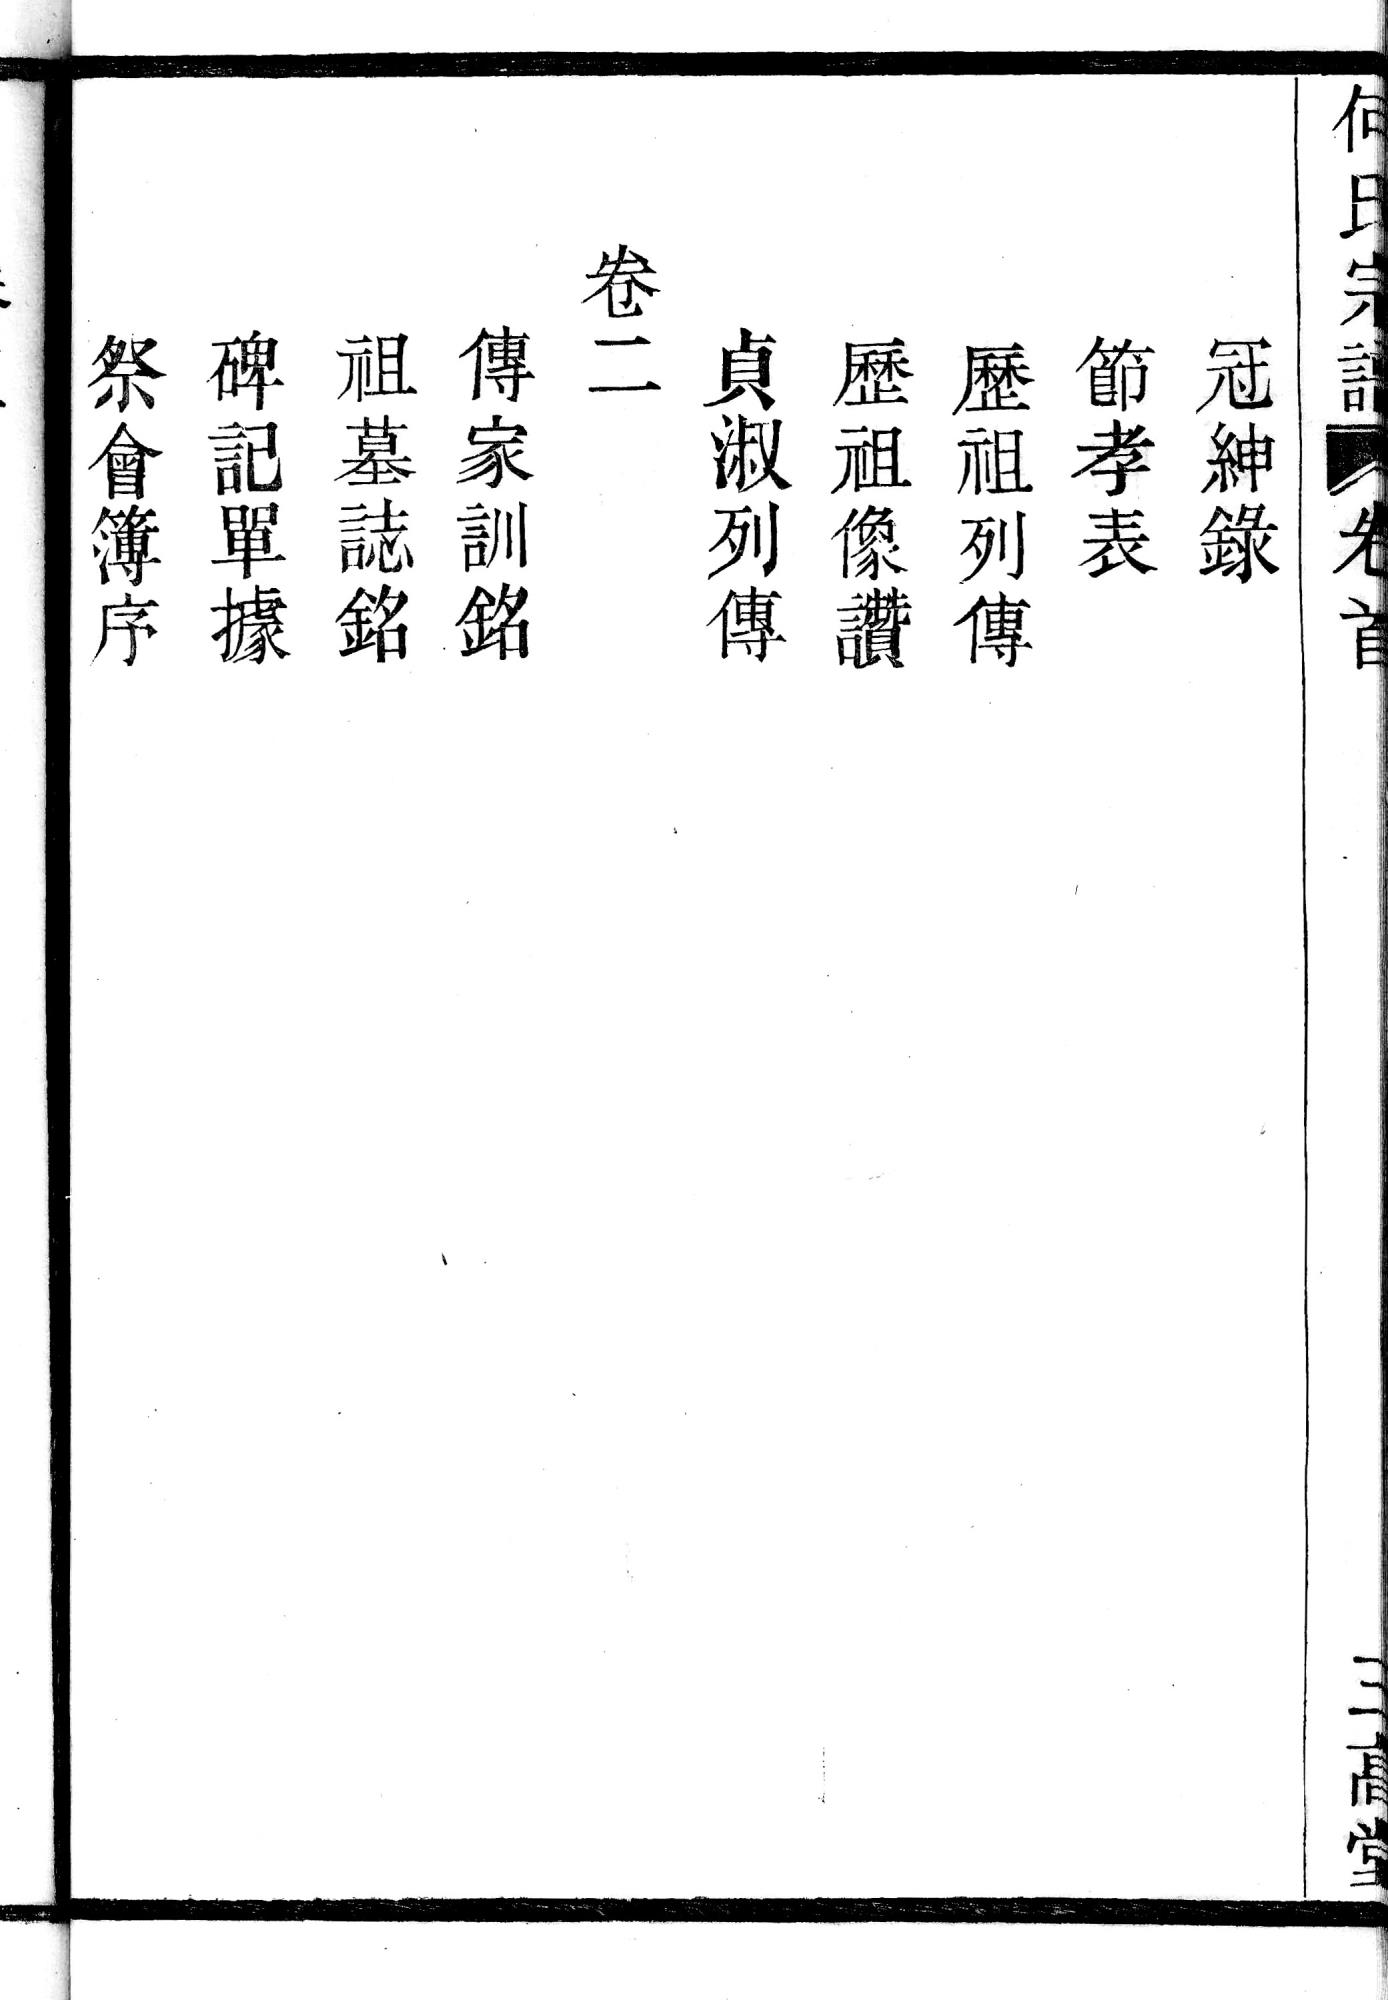 何氏宗譜 卷首 三高堂
冠紳錄
節孝表
歷祖列傳
歷祖像讚
貞淑列傳
卷二
傳家訓銘
祖墓誌銘
碑記單據
祭會簿序